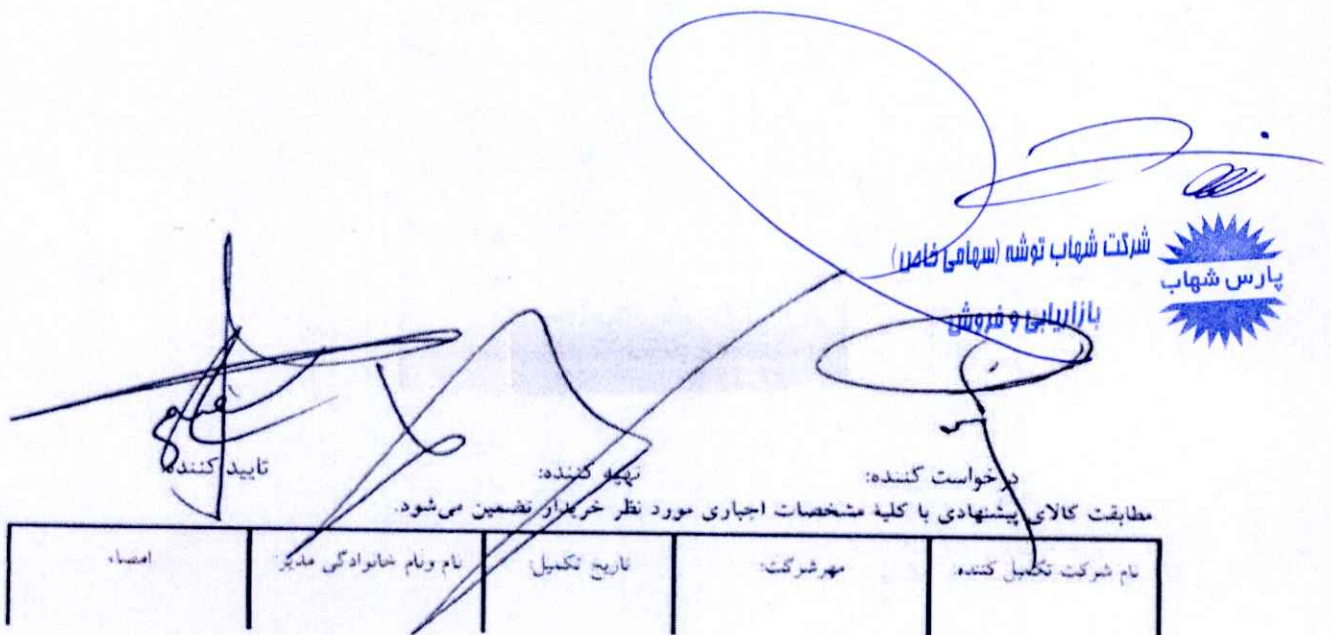 شرکت شهاب توشه (سهامی خاص)
پارس شهاب
بازاریابی و فروش
درخواست کننده: تهیه کننده: تایید کننده:
مطابقت کالای پیشنهادی با کلیه مشخصات اجباری مورد نظر خریدار تضمین می‌شود.
نام شرکت تکمیل کننده: مهرشرکت: تاریخ تکمیل: نام ونام خانوادگی مدیر: امضاء